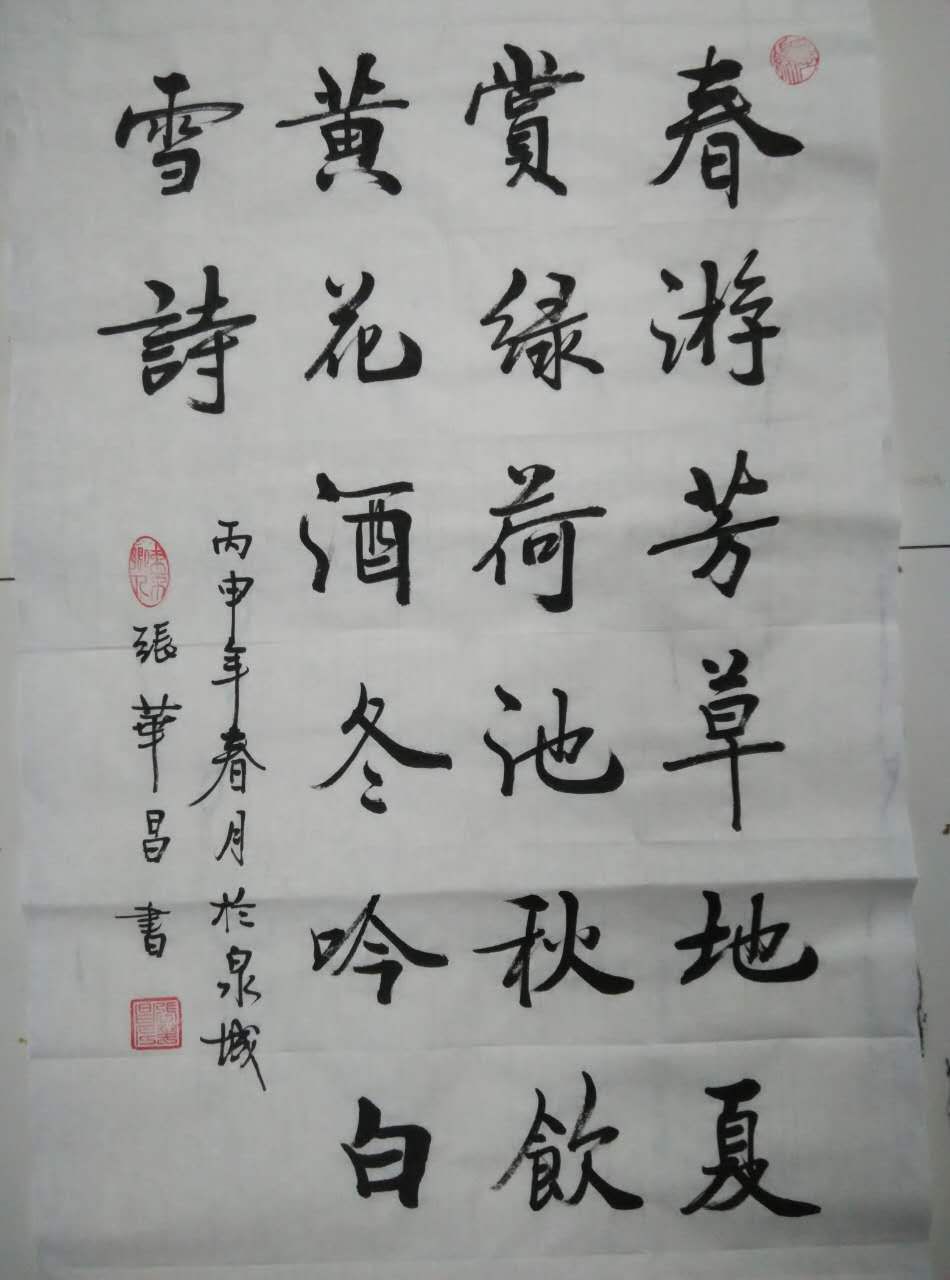 春游芳草地夏
賞緑荷池秋飲
黄花酒冬吟白
雪詩
丙申年春月於泉城
張華昌書